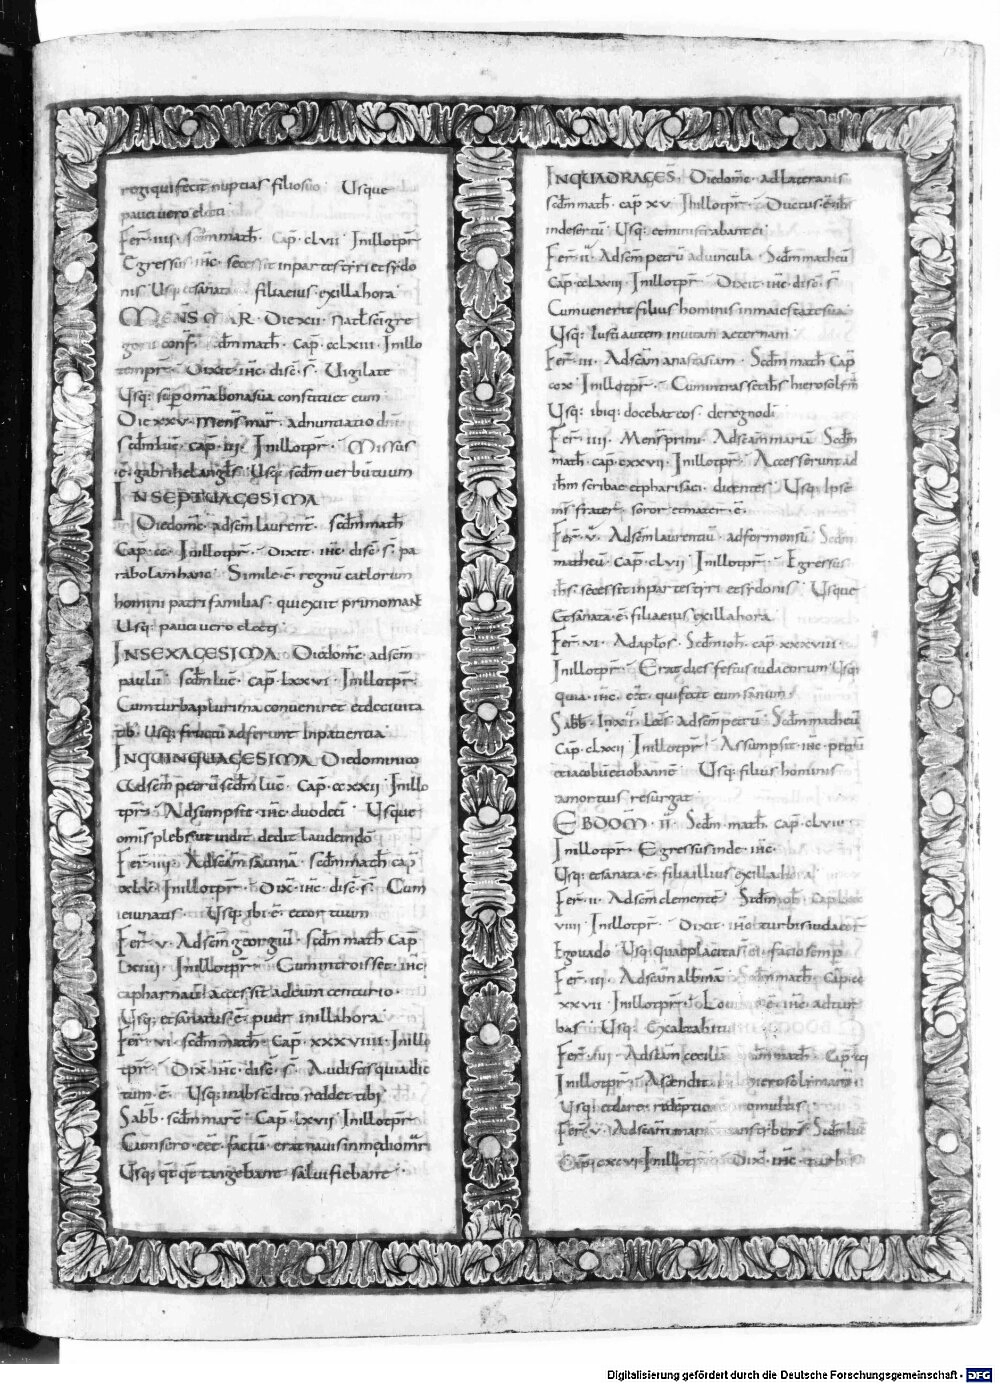 regi qui fecit nuptias filio suo · Usque
pauci vero electi ·
Fer̄ · iiii · scdm math̄ · Cap̄ · clvii · In illo tpr̄ ·
Egressus · ihc · secessit in partes tyri et sydo
nis · Usq; et sanata filia eius · ex illa hora ·
MENS MAR · Die xii · Natl̄ sci gre
gorii conf̄ · scdm math̄ · Cap̄ · cclxiii · In illo
tempr̄ · Dixit · ihc · disc̄ · s̄ · Vigilate
Usq; super oma bona sua constituet eum
Die xxv · mens̄ mar̄ · adnuntiatio dn̄i
scdm luc̄ · cap̄ · iii · In illo tpr̄ · Missus
· ē · gabrihel angls̄ · Usq; scdm verbū tuum
IN SEPTUAGESIMA
Die dome · ad scm laurent̄ · scdm math̄
Cap̄ · cc · In illo tpr̄ · Dixit · ihc · disc̄ · s̄ · pa
rabolam hanc · Simile · ē · regnū caelorum
homini patri familias · qui exiit primo mane
Usq; pauci vero electi ·
IN SEXAGESIMA · Die dome · ad scm
paulū · scdm luc̄ · cap̄ · lxxvi · In illo tpr̄ ·
Cum turba plurima conveniret et de civita
tib · Usq; fructū adferunt In patientia ·
IN QUINQUAGESIMA Die dominico
Ad scm petrū scdm luc̄ · Cap̄ · ccxxii · In illo
tpr̄ · Adsumpsit · ihc · duodeci · Usque
omis plebs ut vidit dedit laudem dō
Fer̄ · iiii · Ad scam savinā · scdm math̄ cap̄
xliiii · In illo tpr̄ · Dix̄ · ihc · disc̄ · s̄ · Cum
ieiunatis · Usq; ibi · ē · et cor tuum
Fer̄ · v · Ad scm georgiū · scdm math̄ Cap̄
lxiiii · In illo tpr̄ · Cum introisset · ihc ·
capharnaū accessit ad eum centurio ·
Usq; et sanatus · ē · puer in illa hora
Fer̄ · vi · scdm math̄ · Cap̄ · xxxviiii · In illo
tpr̄ · Dix̄ · ihc · disc̄ · s̄ · Audistis quia dic
tum · ē · Usq; in absedito reddet tibi ·
Sabb̄ · scdm marc̄ · Cap̄ · lxvii · In illo tpr̄ ·
Cum sero · eēt · factū · erat navis in medio mr̄i
Usq; qt̄ qt̄ tangebant · salvi fiebant ·
IN QUADRAGES · Die dome · ad lateranis
scdm math̄ · cap̄ xv · In illo tpr̄ · Ductus · ē · ihs
in desertū · Usq; et ministrabant ei ·
Fer̄ · ii · Ad scm petrū ad vincula · Scdm matheū
Cap̄ · cclxxiii · In illo tpr̄ · Dixit · ihc · disc̄ · s̄
Cum venerit filius hominis in maiestate sua
Usq; Iusti autem in vitam aeternam ·
Fer̄ · iii · Ad scām anastasiam · Scdm math̄ Cap̄
ccvi · In illo tpr̄ · Cum intrasset ihs hierosolim̄
Usq; ibiq; docebat eos · de regno dī ·
Fer̄ · iiii · Mens̄ primi · Ad scām mariā · Scdm
math̄ · cap̄ · cxxvii · In illo tpr̄ · Accesserunt ad
ihm scribae et pharisaei · dicentes · Usq; Ipse
ms̄ frater · soror et mater · ē ·
Fer̄ · v̄ · Ad scm laurentiū · ad formonsū · Scdm
matheū · Cap̄ · clvii · In illo tpr̄ · Egressus
ihs · secessit in partes tyri et sydonis · Usque
Et sanata · ē · filia eius ex illa hora ·
Fer̄ · vi · Ad aplos · Scdm ioh̄ · cap̄ · xxxviii ·
In illo tpr̄ · Erat dies festus iudaeorum Usq;
quia · ihc · eēt · qui fecit eum sanum ·
Sabb̄ · In xii · Lect̄ Ad scm petrū · Scdm matheū
Cap̄ · clxxii · In illo tpr̄ · Assumpsit · ihc · petrū
et iacobū et iohannē · Usq; filius hominis
a mortuis resurgat ·
EBDOM · II · Scdm · math̄ · cap̄ · clvii ·
In illo tpr̄ · Egressus inde · ihc ·
Usq; et sanata · ē · filia illius ex illa hora
Fer̄ · ii · Ad scm clementē · Scdm ioh̄ · Cap̄ lxxx
viiii · In illo tpr̄ · Dixit · ihc · turbis iudaeor̄
Ego vado · Usq; quae placita s̄ · ei · facio semp
Fer̄ · iii · Ad scam albinā · Scdm math̄ · Cap̄ · cc
xxvii · In illo tpr̄ · Locutus · ē · ihc · ad tur
bas · Usq; Exaltabitur
Fer̄ · iiii · Ad scām ceciliā · scdm math̄ · Cap̄ · cci
In illo tpr̄ · Ascendit hierosolimam
Usq; et dare · redeptionē · p multis ·
Fer̄ · v · Ad scām mariā trans tiberī · Scdm
Cap̄ cxcvi · In illo tpr̄ · Dix̄ · ihc · turbis
Digitalisierung gefördert durch die Deutsche Forschungsgemeinschaft - DFG